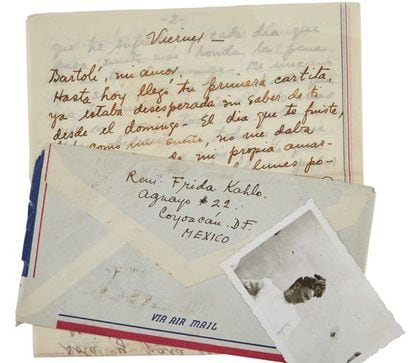 -2-
que he sufrido cada día que
más honda la pena
Viernes —
Bartolí, mi amor.
Hasta hoy llegó tu primera cartita,
ya estaba desesperada sin saber de ti
desde el domingo. El día que te fuiste,
como un sueño, no me daba
de mi propia amar-
lunes po-
Rem: Frida Kahlo.
Aguayo #22.
Coyoacán. D.F.
MEXICO
VIA AIR MAIL